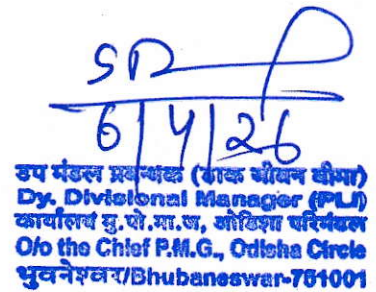 6/4/26
उप मंडल प्रबन्धक (डाक जीवन बीमा)
Dy. Divisional Manager (PLI)
कार्यालय मु.पो.मा.ज, ओडिशा परिमंडल
O/o the Chief P.M.G., Odisha Circle
भुवनेश्वर/Bhubaneswar-751001